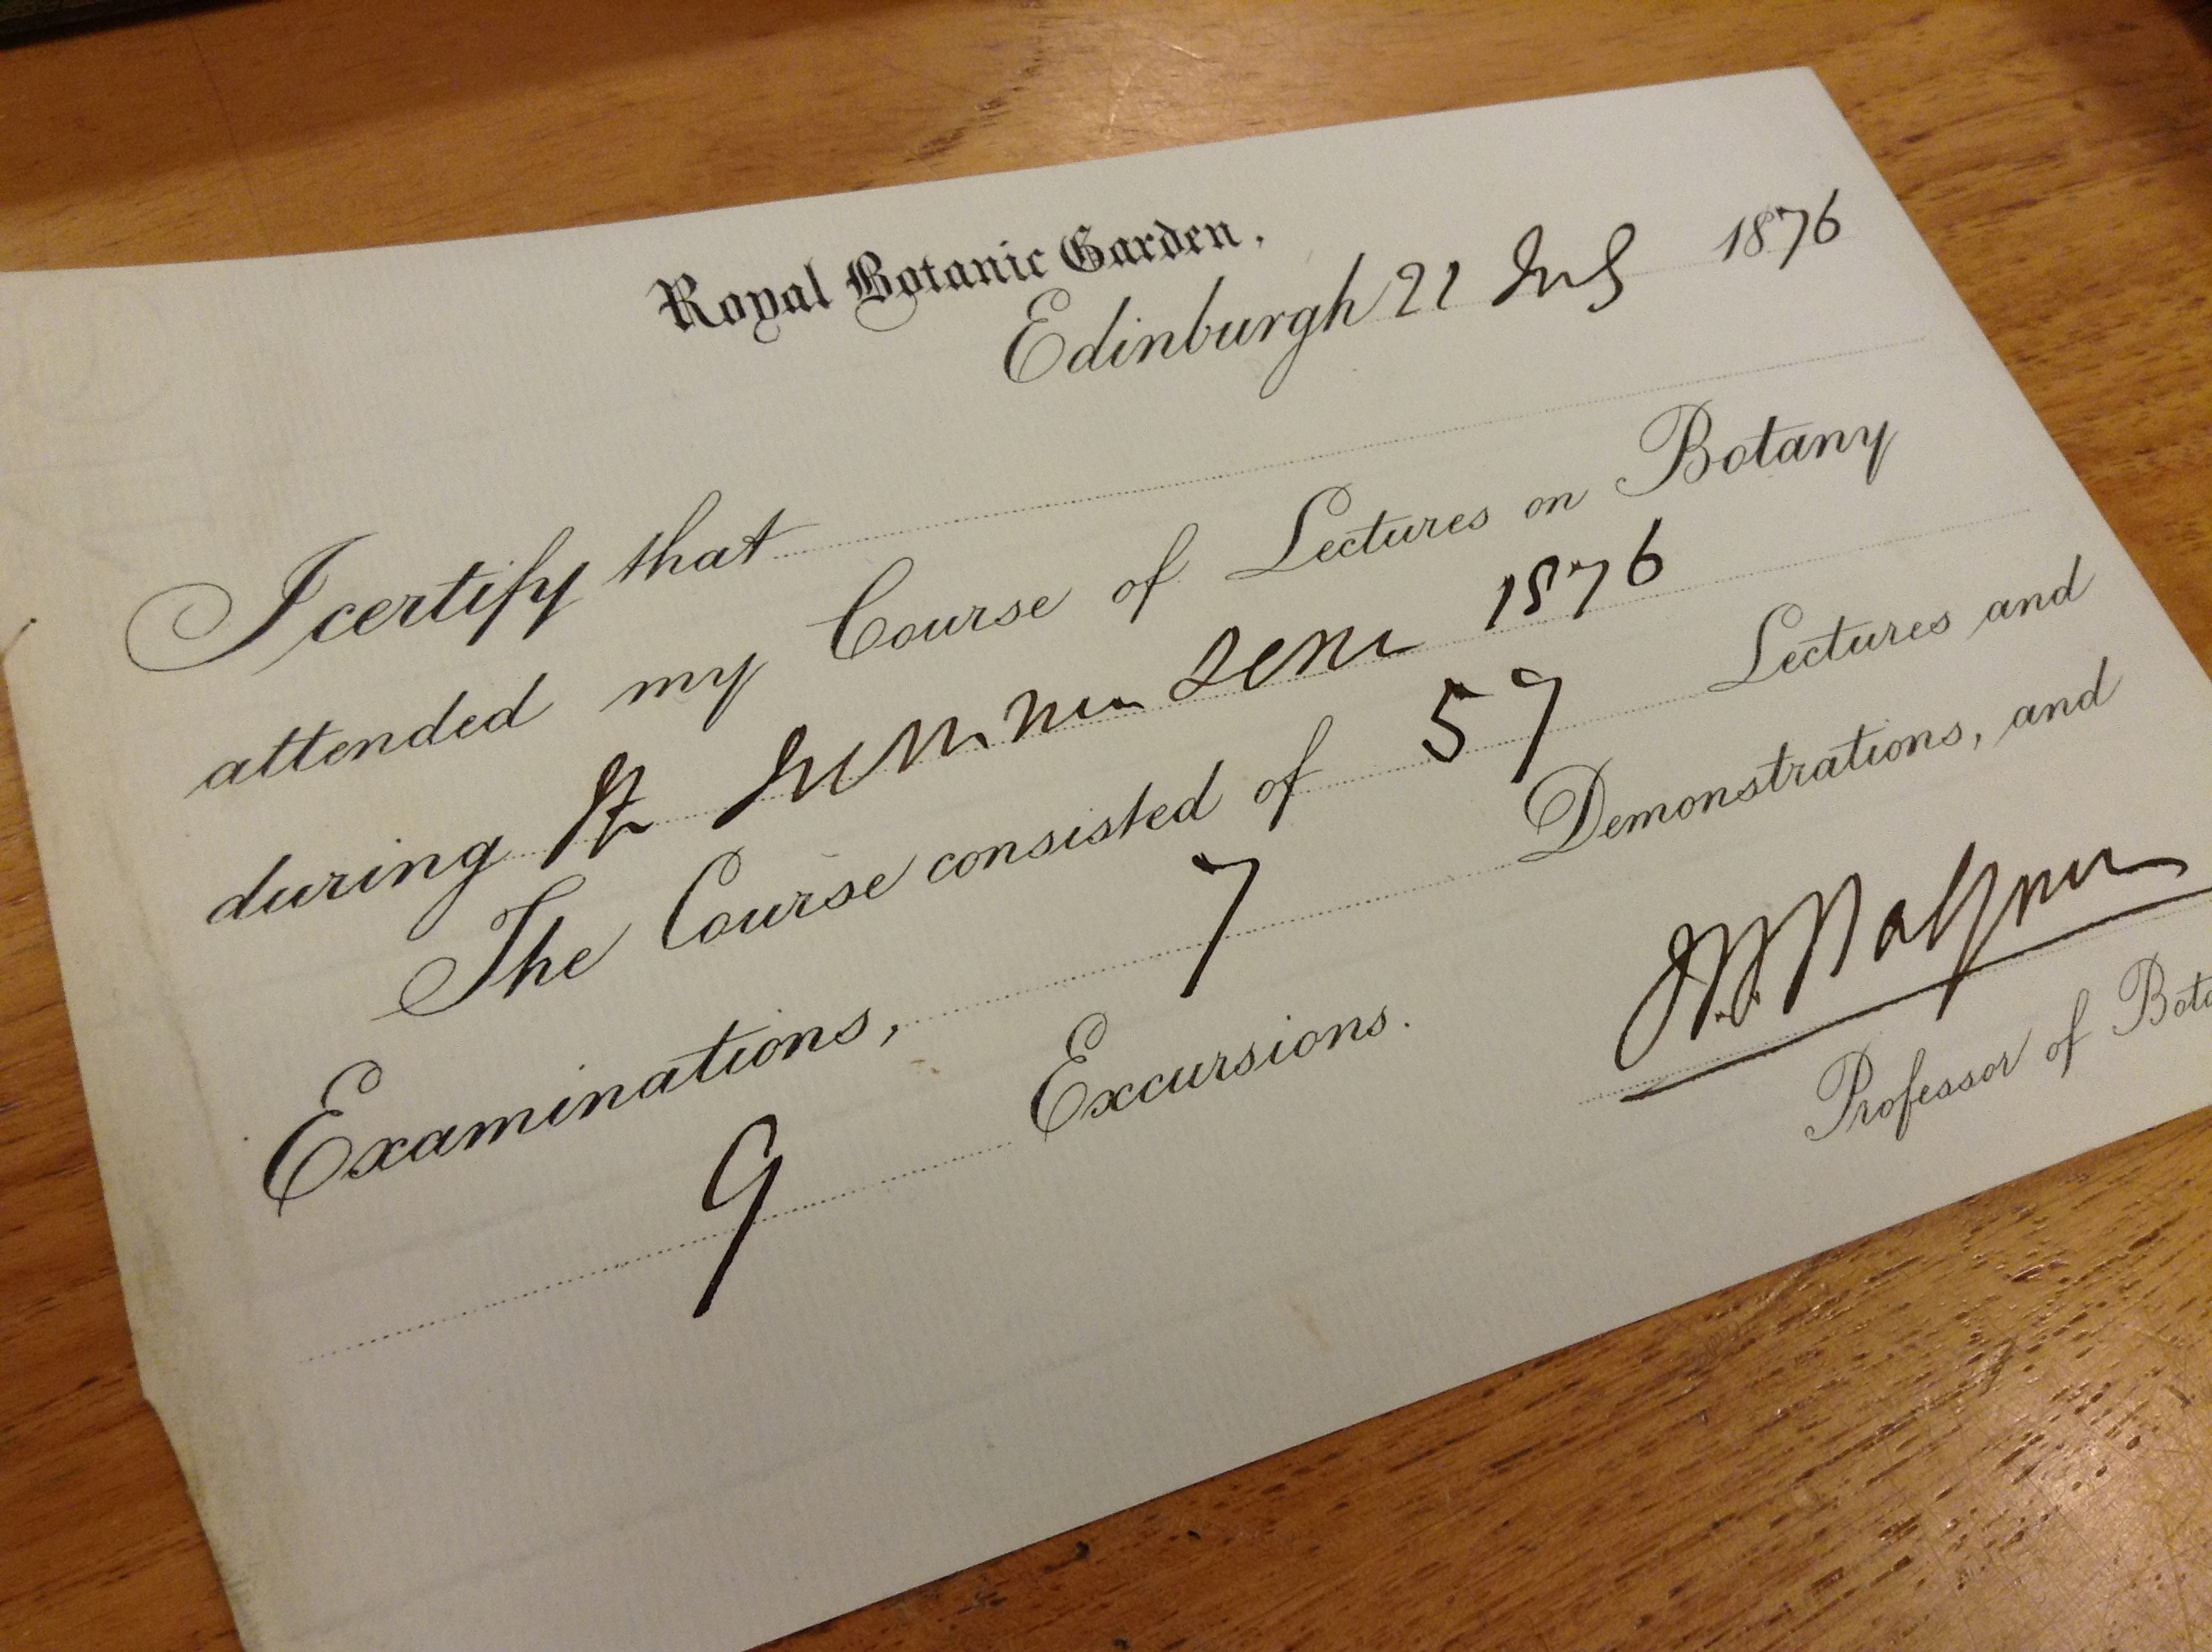 Royal Botanic Garden,
Edinburgh 21 July 1876
I certify that
attended my Course of Lectures on Botany
during the Summer Sess 1876
The Course consisted of 57 Lectures and
Examinations, 7 Demonstrations, and
9 Excursions.
J.H. Balfour
Professor of Bota